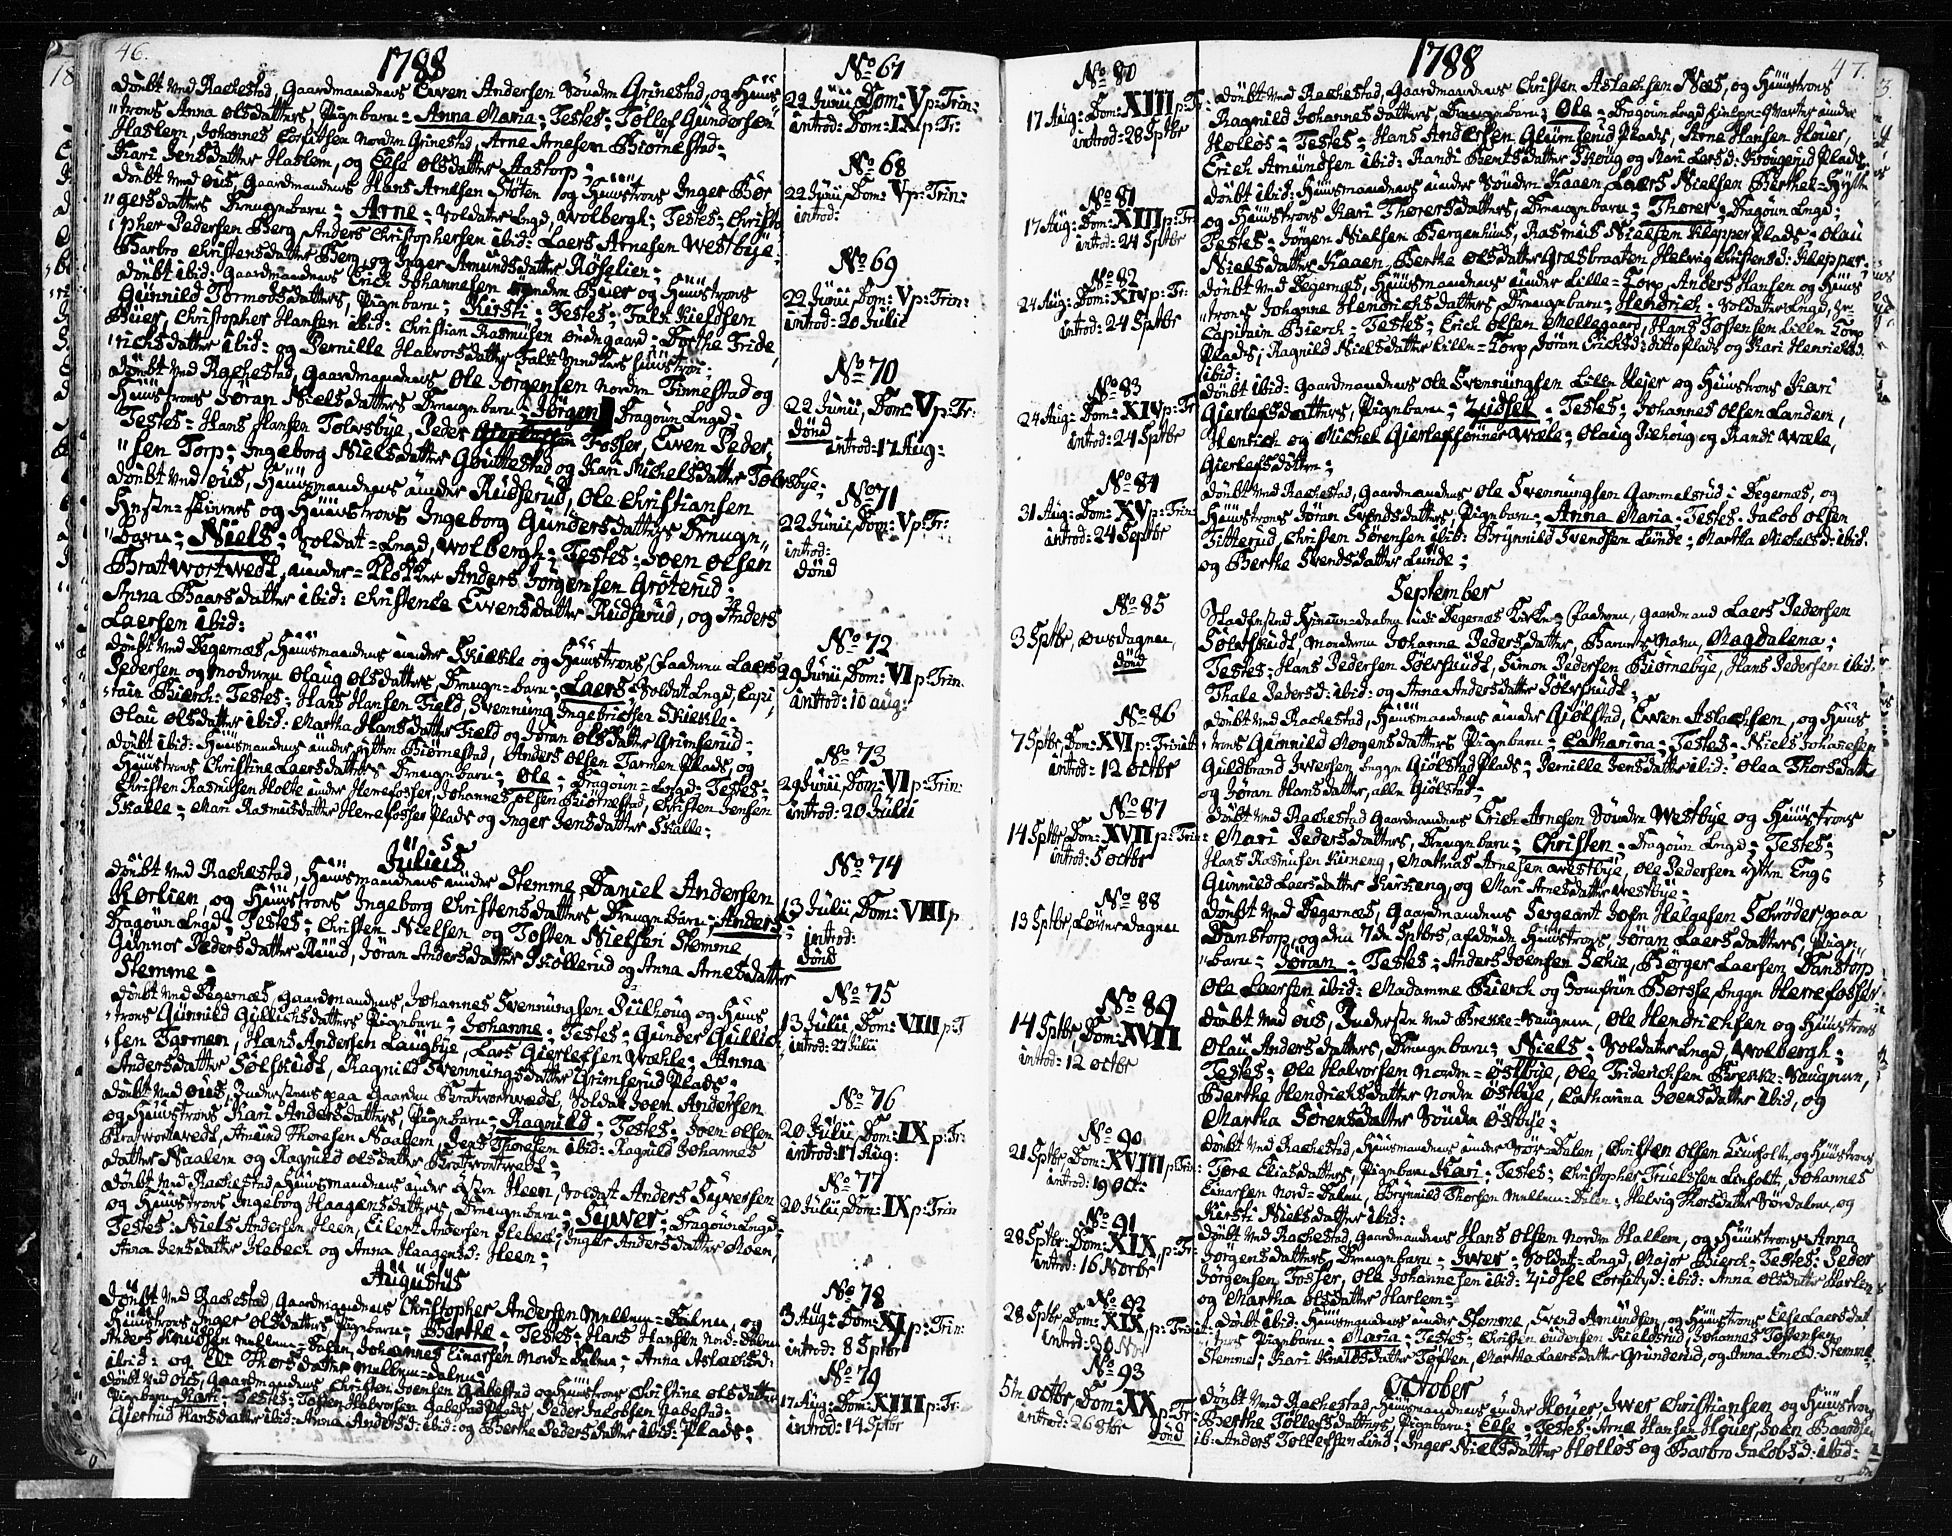 46.
1788
Döbt ved Rachestad, Gaardmandens Ewen Andersen Søndre Grinestad, og Hüüs
"trons Anna Olsdatters, Pigebarn: Anna Maria; Testes: Tollef Gündersen
Haslem, Johannes Nordre Grinestad, Arne Arnesen Biørnestad;
Kari Jensdatter Haslem, og Else Olsdatter Aastorp;
Döbt ved Öüs, Gaardmandens Hans Arnesen Stöten og Hüüstrons Inger Bör
"gersdatters Drengebarn: Arne - Soldater Lægd, Wolbergh; Testes: Christo
"pher Pedersen Berg, Anders Christophersen ibid: Laers Arnesen Westbÿe;
Barbro Christensdatter Berg og Inger Amundsdatter Röselien;
Döbt ibid: Gaardmandens Erich Johannesen Søndre Buer og Hüüstrons
Günnild Tormodsdatters, Pigebarn: Kirsti - Testes: Falk Kieldsen
Buer, Christopher Hansen ibid: Christian Rasmüsen Øüdegaard: Dorthe Fride,
"richsdatter ibid: og Pernille Halvorsdatter
Döbt ved Rachestad, Gaardmandens Ole Jørgensen Nordre Tinnestad og
Hüüstrons Jöran Nielsdatters Drengebarn: Jörgen, Dragoün Lægd;
Testes: Hans Hansen Tolvsbÿe, Peder Fosser, Ewen Peder,
"sen Torp; Ingeborg Nielsdatter og Kari Michelsdatter Tolvsbÿe;
Döbt ved Öüs, Hüüsmandens ünder Rüdserüd, Ole Christiansen
og Hüüstrons Ingeborg Gündersdatters Drenge"
"barn; Niels; Soldat-Lægd, Wolbergh; Testes: Joen Olsen
Bratwortwedt, Anders Jörgensen Gröterud;
Anna Baarsdatter ibid: Christence Ewensdatter Rüdserüd, og Anders
Laersen ibid:
Döbt ved Degernæs, Hüüsmandens ünder Skiekle og Hüüstrons, Faderen Laers
Pedersen og Moderen Olaug Olsdatters, Drenge-barn: Laers - Soldat Lægd, Capi,
"tain Bierch: Testes: Hans Hansen Field, Svennüng Ingebrictsen Skiekle -
Olau Olsdatter ibid: Martha Hansdatter Field og Jøran Olsdatter Grimserüd;
Döbt ibid: Hüüsmandens ünder Ÿttre Biørnestad, Anders Olsen Tarmen Plads, og
Hüüstrons Christine Laersdatters Drengebarn; Ole; Dragoün-Lægd - Testes:
Christen Rasmüsen Holte ünder Herrefosser, Johannes Olsen Biørnestad, Christen Jensen
Skalle; Mari Rasmüsdatter Herrefosser Plads og Inger Jensdatter Skalle;
Jülius
Döbt ved Rachestad, Hüüsmandens ünder Stemme, Daniel Andersen
Horlien, og Hüüstrons Ingeborg Christensdatters Drengebarn; Anders;
Dragoün Lægd; Testes: Christen Nielsen og Tosten Nielsen Stemme
Günnor Pedersdatter Rüüd, Jöran Andersdatter Skollerud og Anna Arnesdatter
Stemme;
Döbt ved Degernæs, Gaardmandens Johannes Svennüngsen Piilhoüg og Hüüs
"trons Günnild Güllichsdatters Pigebarn; Johanne; Testes: Günder Güllic,
"sen Tarmen, Hans Andersen Langbÿe, Lars Gierlefsen Wæhle: Anna
Andersdatter Sölfskudt, Ragnild Svennüngsdatter Grimserüd Plads;
Döbt ved Öüs, paa Gaarden Bratwortwedt, Soldat Joen Andersen
og Hüüstrons Kari Andersdatters, Pigebarn; Ragnild; Testes: Joen Olsen
Bratwortwedt, Amünd Thoresen Naalem, Jens Thoresen ibid: Ragnild Johannes
datter Naalem og Ragnild Olsdatter Bratwortwedt;
Döbt ved Rachestad Hüüsmandens ünder Heen, Soldat Anders Sÿversen
og Hüüstrons Ingeborg Haagensdatters, Drengebarn; Sÿwer; Dragoün Lægd
Testes: Niels Andersen Heen, Eilert Andersen Hebech; Inger Andersdatter Moen,
Anna Jensdatter Hebech og Anna Haagensd: Heen;
Augüstüs
Döbt ved Rachestad, Gaardmandens Christopher Andersen Mellem-Dalen, og
Hüüstrons Inger Olsdatters, Pigebarn; Berthe, Testes: Hans Hansen Nord-Dalen
Anders Knudsen Mellem-Dalen, Johannes Einarsen Nordre Dalen; Anna Aslachsd:
ibid: og Eli Thorsdatter Mellem-Dalen;
Döbt ved Öüs, Gaardmandens Christen Svensen Gabestad og Hüüstrons Christine Olsdatters
Pigebarn; Kari - Testes: Tosten Halvorsen Gabestad Plads, Peder Jacobsen Gabestad:
Giertrud Hansdatter ibid: Anna Andersd: ibid: og Berthe Pedersdatter ibid: Plads;
No 67
22 Junii, Dom: V p: Trin:
introd: Dom: IX p: Tr:
No 68
22 Junii, Dom: V p: Trin:
introd:
No 69
22 Junii, Dom: V p: Trin:
introd: 20 Julii
No 70
22 Junii, Dom: V p: Tr:
Dønd
introd: 17 Aug:
No 71
22 Junii, Dom: V p: Tr:
introd:
Dønd
No 72
29 Junii, Dom: VI p: Trin:
introd: 10 aug:
No 73
29 Junii, Dom: VI p: Trin:
introd: 20 Julii
No 74
13 Julii, Dom: VIII p
introd:
Dønd
No 75
13 Julii, Dom: VIII p: T
introd: 27 Julii
No 76
20 Julii, Dom: IX p: Tr:
introd: 17 Aug:
No 77
20 Julii, Dom: IX p: Trin
No 78
3 Aug: Dom: XI p: Trin:
introd: 8 Sptbr
No 79
17 Aug: Dom: XIII p: Tr:
introd: 14 Sptbr
No 80
17 Aug: Dom: XIII p: Tr:
introd: 28 Sptbr
No 81
17 Aug: Dom: XIII p: Tr:
introd: 24 Sptbr
No 82
24 Aug: Dom: XIV p: Tr:
introd: 24 Sptbr
No 83
24 Aug: Dom: XIV p: Tr
introd: 24 Sptbr
No 84
31 Aug: Dom: XV p: Trin:
introd: 24 Septbr
No 85
3 Sptbr, Onsdagen,
Dønd
No 86
7 Sptbr, Dom: XVI p: Trinit
introd: 12 Octbr
No 87
14 Sptbr, Dom: XVII p: Trin:
introd: 5 Octbr
No 88
13 Sptbr, Løverdagen
No 89
14 Sptbr, Dom: XVII
introd: 12 Octbr
No 90
21 Sptbr, Dom: XVIII p: Trin:
introd: 19 Oct:
No 91
28 Sptbr: Dom: XIX p: Tr:
introd: 16 Novbr
No 92
28 Sptbr, Dom: XIX, p: Trinit
introd: 30 Nov
No 93
5te Octbr, Dom: XX p: Tr:
introd: 26 8tbr
Dønd
1788
47.
Döbt ved Rachestad, Gaardmandens Christen Aslachsen Næs, og Hüüstrons
Ragnild Johannesdatters, Drengebarn; Ole - Dragoün Lægd ünder
Hølløs; Testes: Hans Andersen Glümserüd Plads, Arne Hansen Høuer,
Erich Amündsen ibid: Randi Berntsdatter Skoüg og Mari Larsd: Krogerüd Plads,
Döbt ibid: Hüüsmandens ünder Søndre Kaaen Laers Nielsen Berthel-Hytten
og Hüüstrons Kari Thorersdatters, Drengebarn; Thorer, Dragoün Lægd;
Testes: Jørgen Nielsen Bergenhüüs, Rasmüs Nielsen Klepper Plads; Olau
Nielsdatter Kaaen, Berthe Olsdatter Græsbraaten, Helvig Christensd: Klepper;
Döbt ved Degernæs, Hüüsmandens ünder Lille-Torp, Anders Hansen og Hüüs
"trons Johanne Hendrichsdatters, Drengebarn; Hendrich - Soldater Lægd,
Capitain Bierch - Testes: Erich Olsen Mellegaard, Hans Tostensen Lillen Torp
Plads; Ragnild Nielsdatter Lille-Torp, Jöran Erichsd: ditto Plads og Kari Henrichsd.
ibid:
Döbt ibid: Gaardmandens Ole Svennüngsen Lilen Højer og Hüüstrons Kari
Gierlefsdatters, Pigebarn; Zidsel - Testes: Johannes Olsen Landem,
Henrich og Michel Gierlefsønner Wæle; Olaug og Randi Wæle,
Gierlefsdøttre;
Döbt ved Rachestad, Gaardmandens Ole Svennüngsen Gammelsrüd i Degernæs, og
Hüüstrons Jöran Svendsdatters, Pigebarn; Anna Maria - Testes: Jacob Olsen
Titterud, Christen Sörensen ibid: Brÿnnild Svendsen Lünde; Martha Michelsd: ibid:
og Berthe Svendsdatter Lünde;
September
Stadfæsted Hiemme-daaben udi Degernæs Kirke; Faderen, Gaardmand Laers Pedersen
Sölvskudt, Moderen Johanne Pedersdatter, Barnets Navn, Magdalena;
Testes: Hans Pedersen Sölvskudt, Simon Pedersen Biørnebÿe, Hans Pedersen ibid:
Thale Pedersd: ibid: og Anna Andersdatter Sölvskudt;
Döbt ved Rachestad, Hüüsmandens ünder Giølstad, Ewen Aslachsen, og Hüüs
"trons Günnild Mogensdatters Pigebarn; Catharina - Testes: Niels Johannesen
Guldbrand Iwersen, begge Giølstad Plads; Pernille Jensdatter ibid: Olea Thorsdatter
og Jøran Hansdatter, alle Giølstad;
Döbt ved Rachestad Gaardmandens Erich Arnesen Søndre Westbÿe og Hüüstrons
Mari Pedersdatters, Drengebarn; Christen - Dragoün Lægd - Testes:
Hans Rasmüsen Kirkeng, Mathias Arnesen Westbÿe, Ole Pedersen Ÿttre Eng;
Günnild Laersdatter Kirkeng, og Mari Arnesdatter Westbÿe;
Döbt ved Degernæs, Gaardmandens Sergeant John Helgesen Schröder paa
Danstorp, og den 7de Sptbrs afdøde Hüüstrons, Jöran Laersdatters, Pige"
"barn; Jöran; Testes: Anders Joensen Schie, Börger Laersen Danstorp
Ole Laersen ibid: Madamme Bierch og Jomfrue Børsse, begge Herrefosser:
Döbt ved Öüs, ved Brekke-Saugene, Ole Hendrichsen og Hüüstrons
Olau Andersdatters, Drengebarn; Niels; Soldater Lægd, Wolbergh;
Testes: Ole Halvorsen Nordre-Östbÿe, Ole Friderichsen Brekke-Saugene,
Berthe Hendrichsdatter Nordre Östbÿe, Catharina Svensdatter ibid, og
Martha Sörensdatter Søndre Östbÿe;
Döbt ved Rachestad, Hüüsmandens ünder Sør-Dalen, Christen Olsen Linholt, og Hüüstrons
Tore Eliasdatters, Pigebarn, Kari; Testes: Christopher Truelssen Linholt, Johannes
Einarsen Nord-Dalen, Brÿnnild Thorsen Mellem-Dalen; Helvig Thorsdatter Sørdalen, og
Kirsti Nielsdatter ibid:
Döbt ved Rachestad, Gaardmandens Hans Olsen Nordre Hallem, og Hüüstrons Anna
Jørgensdatters, Drengebarn - Iwer - Soldat-Lægd, Major Bierch - Testes: Peder
Jørgensen Fosser, Ole Johannesen ibid: Zidsel ibid: Anna Olsdatter Harlem
og Martha Olsdatter Harlem;
Döbt ibid: Hüüsmandens ünder Stemme, Svend Amündsen, og Hüüstrons Else Laersdat
"ters Pigebarn - Maria - Testes: Christen Kielstrüd Johannes Tostensen
Stemme: Kari Knudsdatter Toften, Martha Laersdatter Gründerüd, og Anna Arnesd: Stemme;
October
Döbt ved Rachestad, Hüüsmandens ünder Høuer, Iwer Christiansen og Hüüstrons
Berthe Tollefsdatters, Pigebarn; Else; Testes: Arne Hansen Høuer, Joen Baardse
ib: Anders Tollefsen Lund; Inger Nielsdatter Hølløs og Barbro Jacobsd: ibid: